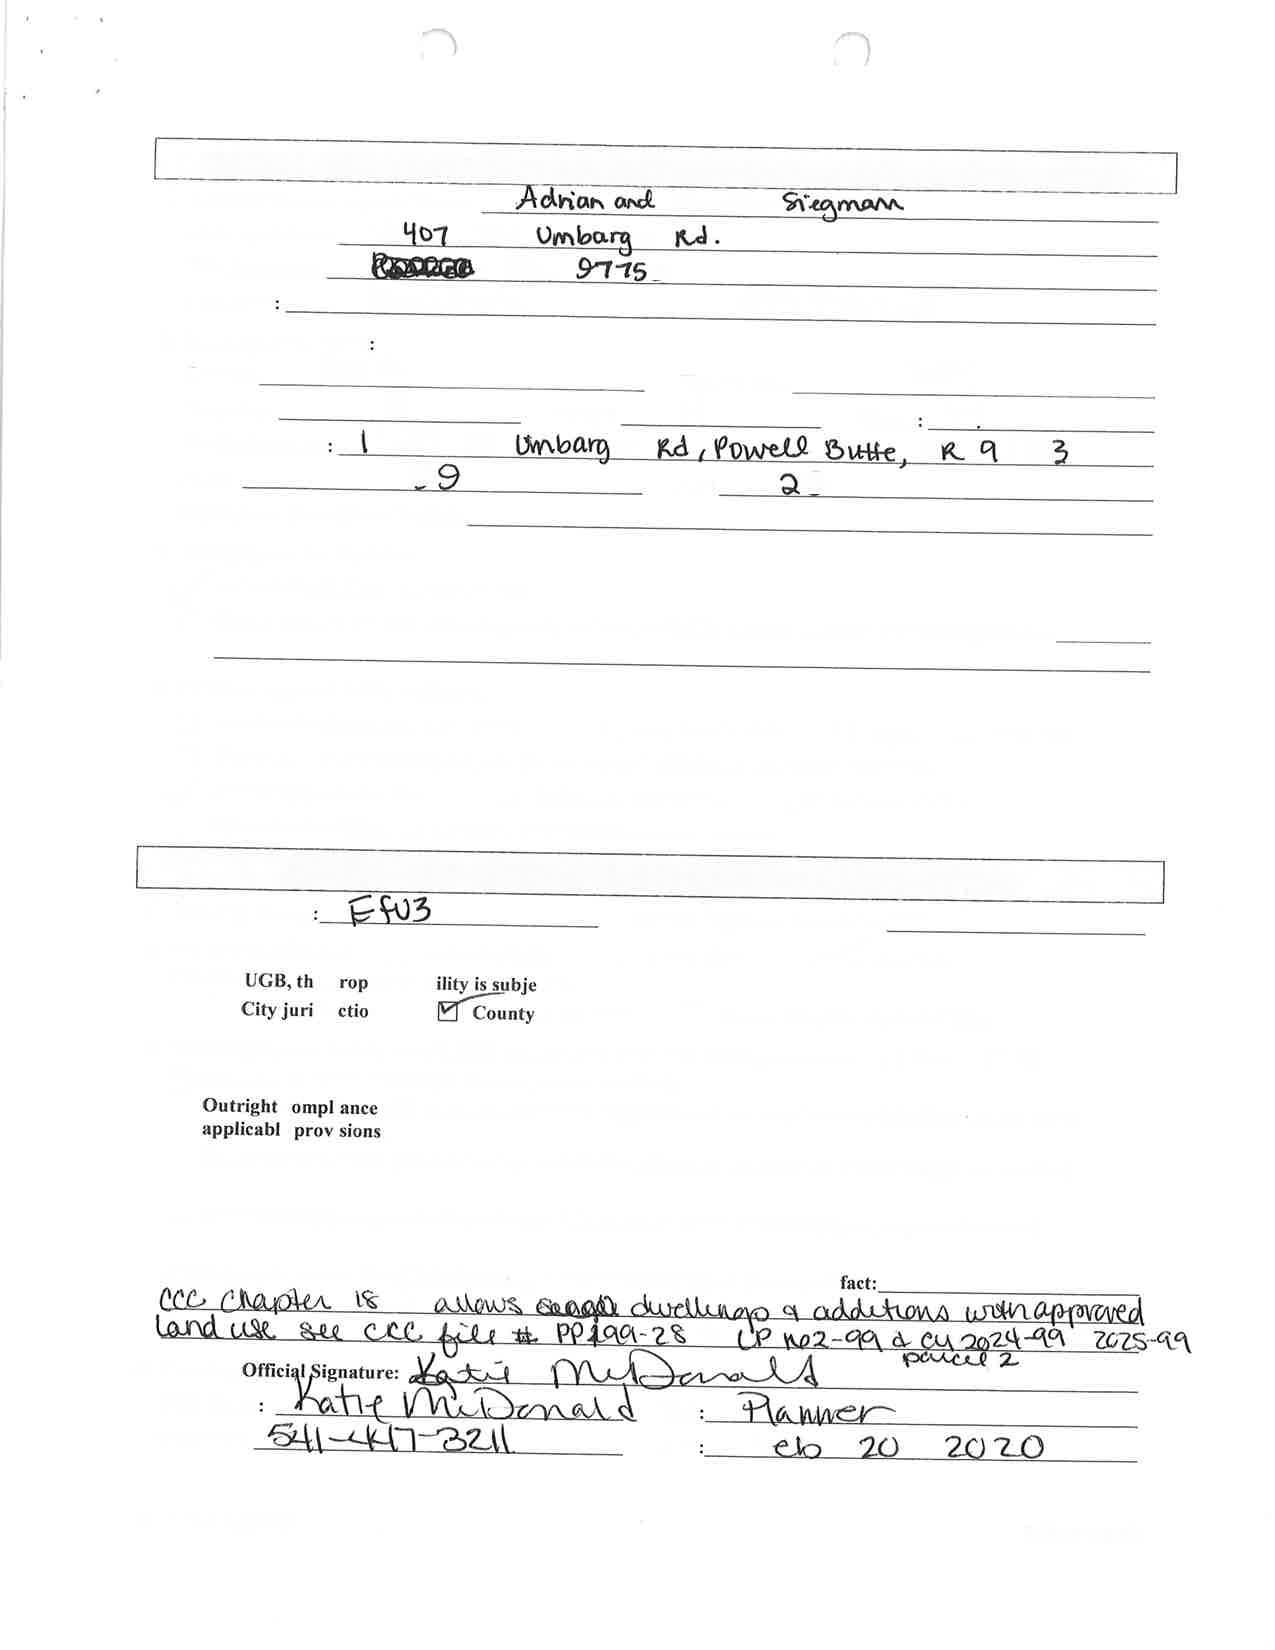 Adrian and Siegmann
407 Umbarg Rd.
9775
:
:
:
: 1 Umbarg Rd, Powell Butte, R 9 3
- 9 2
: EfU3
UGB, th rop ility is subje
City juri ctio County
Outright ompl ance
applicabl prov sions
fact:
CCC Chapter 18 allows dwellings & additions with approved
land use see CCC file # PP199-28 LP No2-99 & CU 2024-99 2025-99
parcel 2
Official Signature: Katie McDonald
: Katie McDonald : Planner
541-447-3211 : eb 20 2020